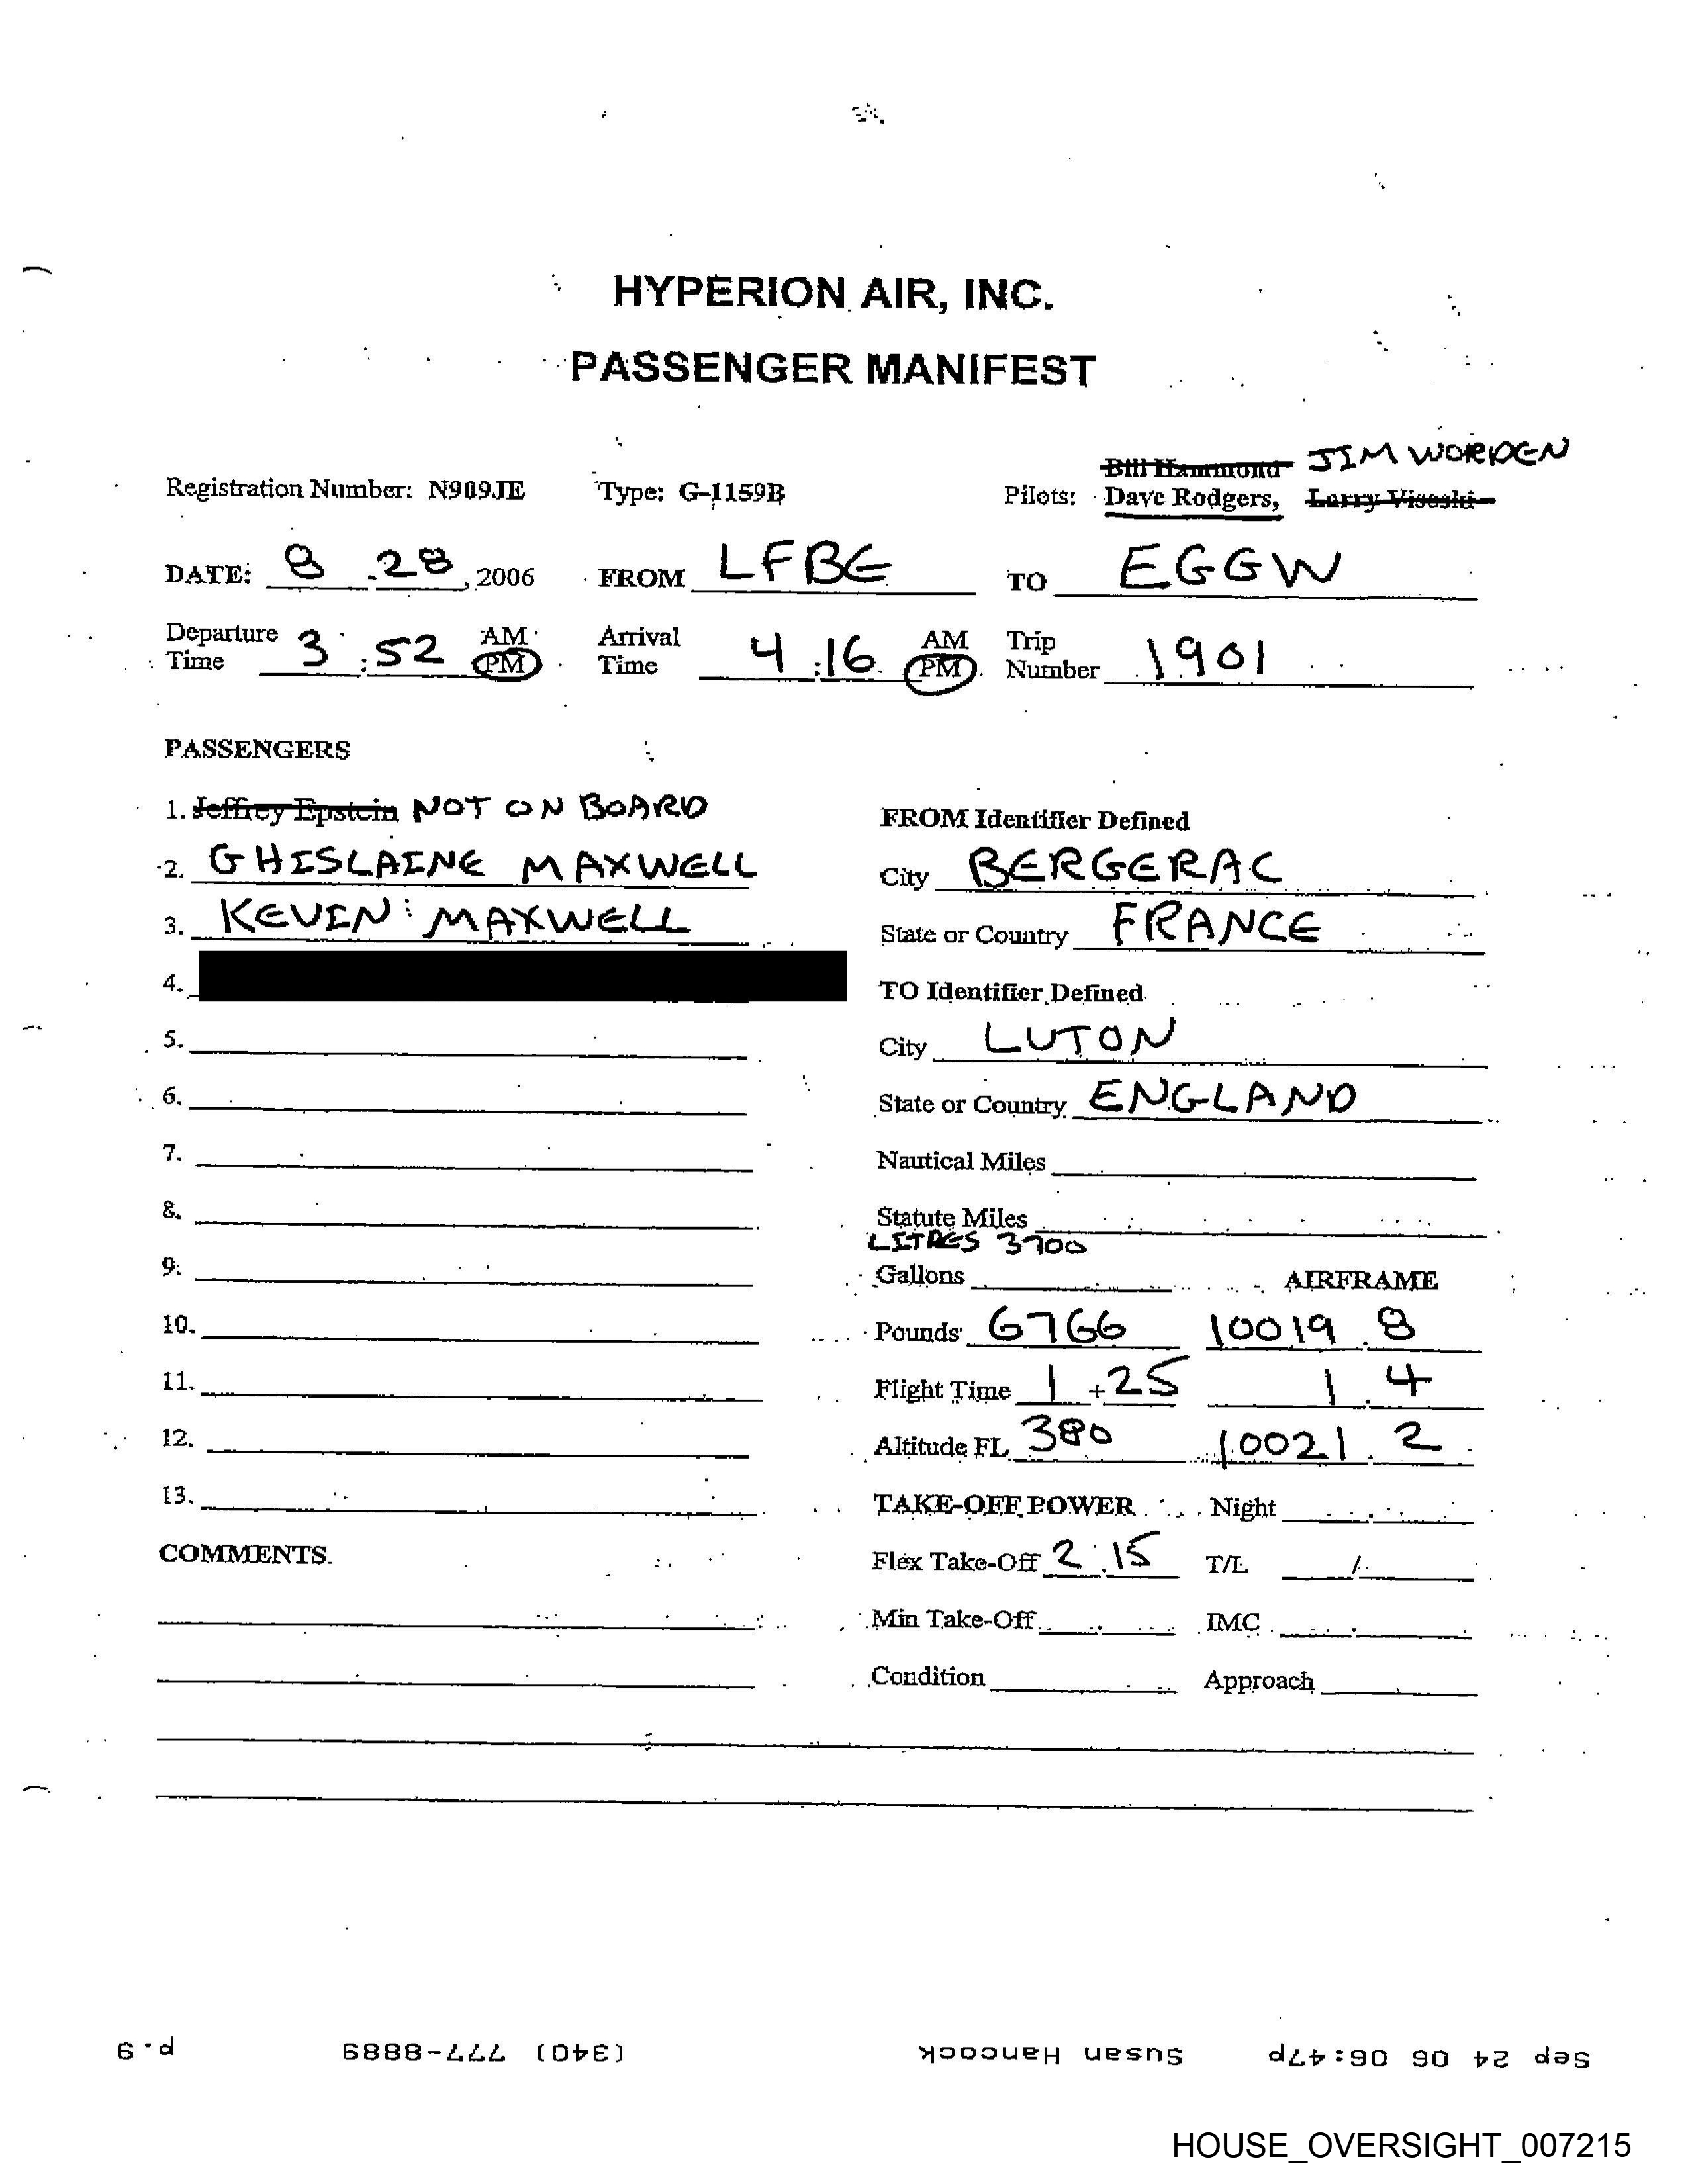 HYPERION AIR, INC.
PASSENGER MANIFEST
Registration Number: N909JE Type: G-1159B Pilots: Bill Hammond JIM WORDEN
Dave Rodgers, Larry Visoski
DATE: 8 28, 2006 FROM LFBE TO EGGW
Departure Time 3:52 AM PM Arrival Time 4:16 AM PM Trip Number 1901
PASSENGERS
1. Jeffrey Epstein NOT ON BOARD
2. GHISLAINE MAXWELL
3. KEVIN MAXWELL
4.
5.
6.
7.
8.
9.
10.
11.
12.
13.
COMMENTS
FROM Identifier Defined
City BERGERAC
State or Country FRANCE
TO Identifier Defined
City LUTON
State or Country ENGLAND
Nautical Miles
Statute Miles
LITRES 3700
Gallons AIRFRAME
Pounds 6766 10019.8
Flight Time 1+25 1.4
Altitude FL 380 10021.2
TAKE-OFF POWER Night
Flex Take-Off 2.15 T/L /
Min Take-Off IMC
Condition Approach
Sep 24 06 06:47p Susan Hancock (340) 777-8889 p.9
HOUSE_OVERSIGHT_007215